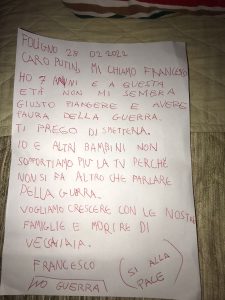 FOLIGNO 28 02 2022
CARO PUTIN, MI CHIAMO FRANCESCO
HO 7 ANNI E A QUESTA
ETÀ NON MI SEMBRA
GIUSTO PIANGERE E AVERE
PAURA DELLA GUERRA.
TI PREGO DI SMETTERLA.
IO E ALTRI BAMBINI NON
SOPPORTIAMO PIÙ LA TV PERCHÉ
NON SI FA ALTRO CHE PARLARE
DELLA GUERRA.
VOGLIAMO CRESCERE CON LE NOSTRE
FAMIGLIE E MORIRE DI
VECCHIAIA.
FRANCESCO
NO GUERRA
SI ALLA
PACE